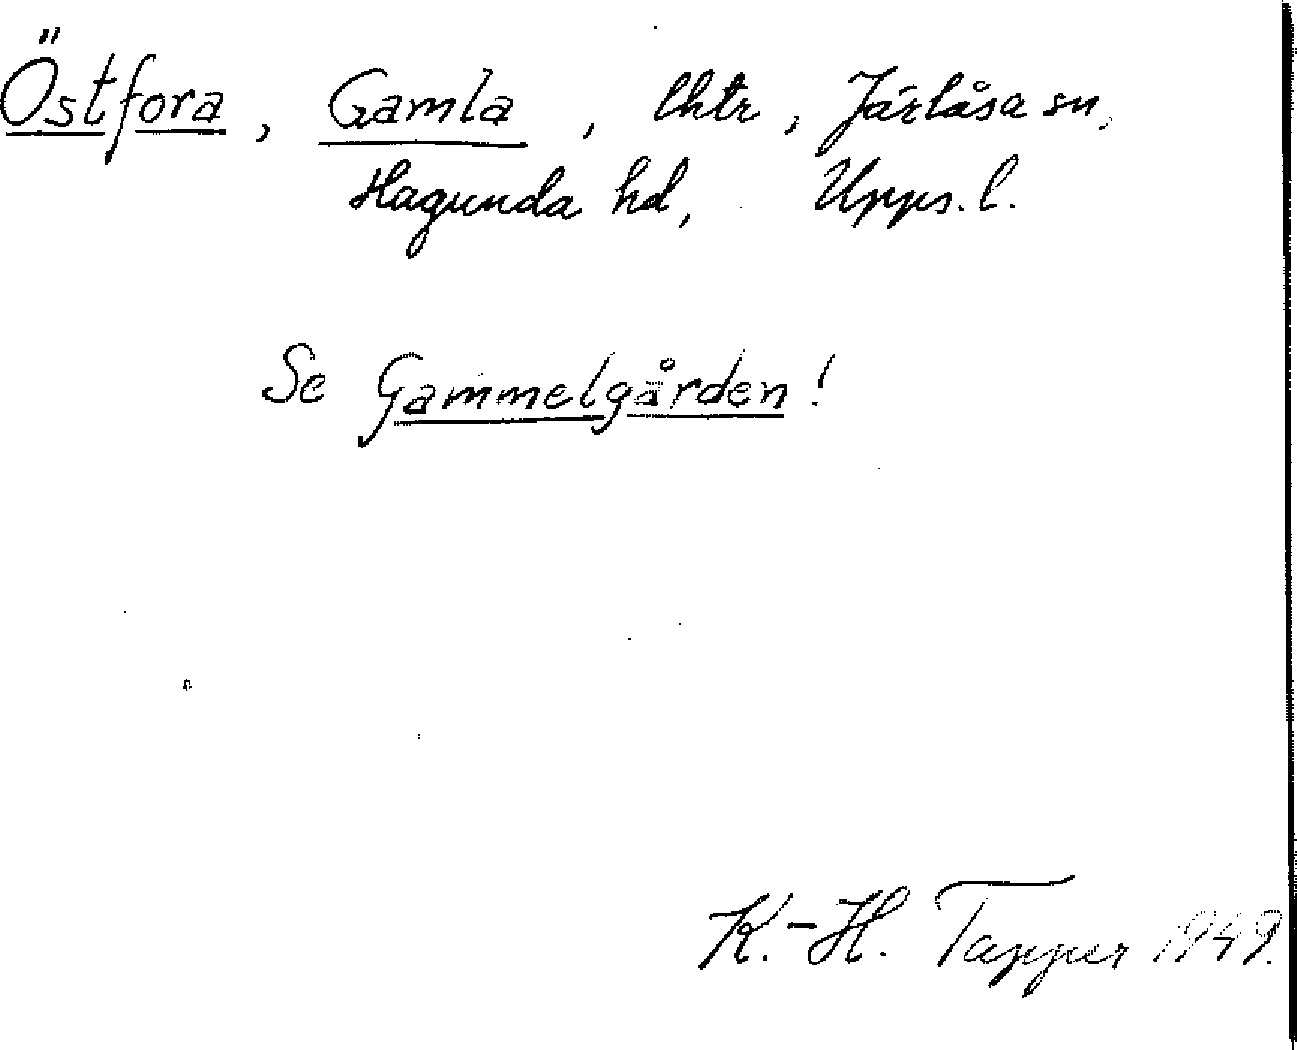 Östfora, Gamla, lhtr, Järlåsa sn,
Hagunda hd, Upps. l.
Se Gammelgården!
K.-H. Tapper 1949.